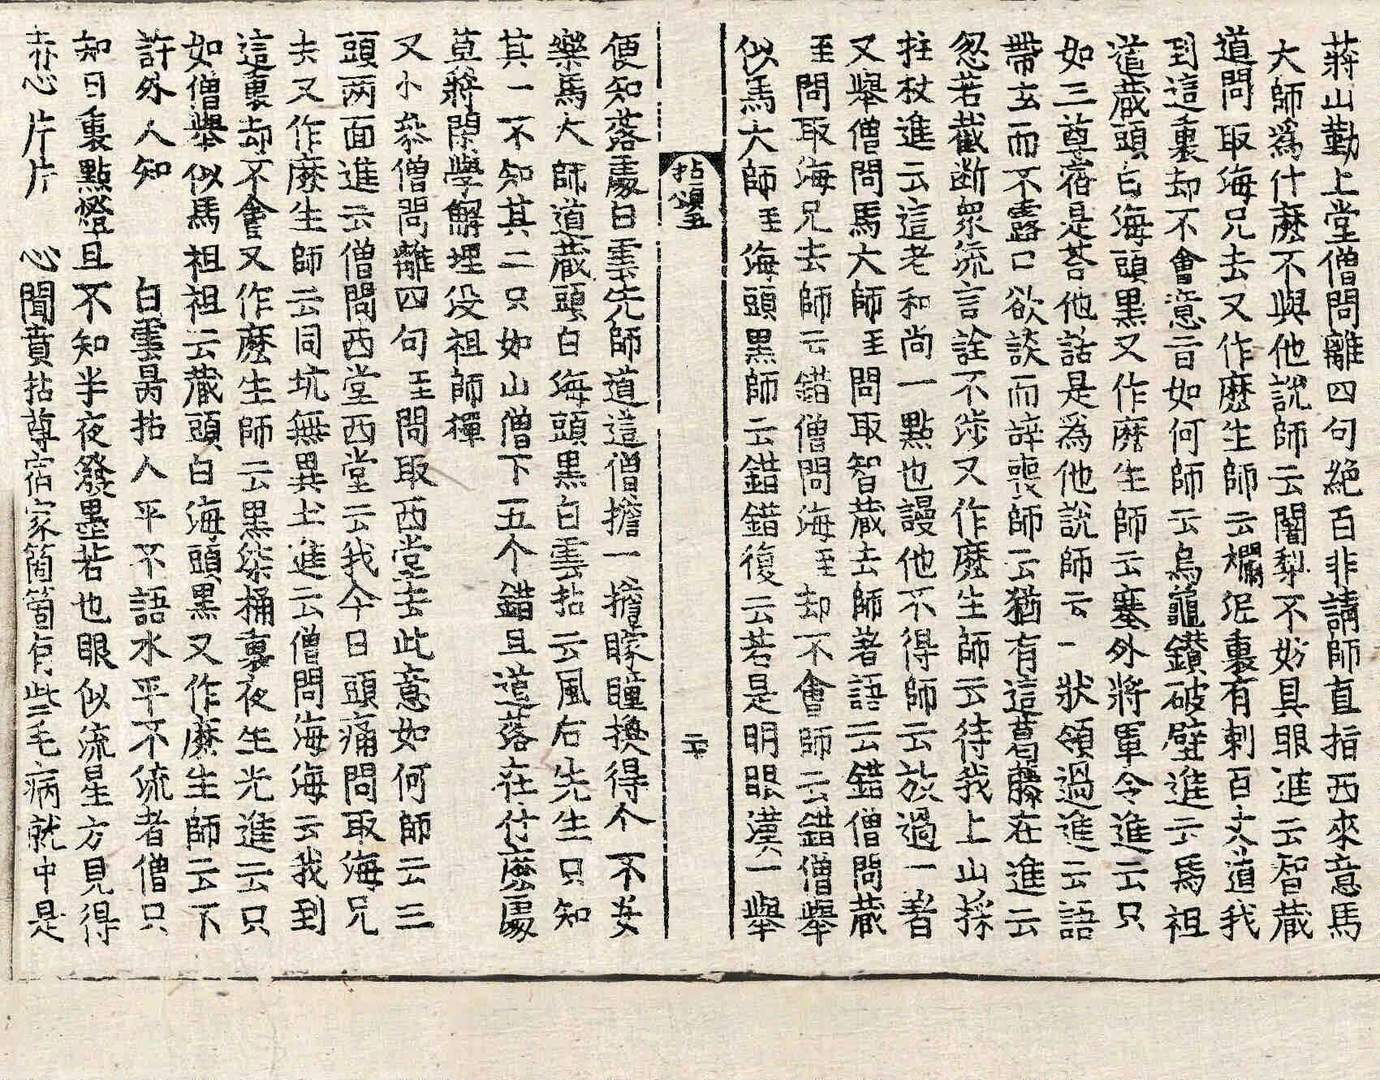 蔣山勤上堂僧問離四句絶百非請師直指西來意馬
大師爲什麽不與他說師云闍梨不妨具眼進云智藏
道問取海兄去又作麽生師云爛泥裏有刺百丈道我
到這裏却不會意旨如何師云烏龜鑽破壁進云馬祖
道藏頭白海頭黑又作麽生師云塞外將軍令進云只
如三尊宿是荅他話是爲他說師云一狀領過進云語
帶玄而不露口欲談而辞喪師云猶有這葛藤在進云
忽若截断衆流言詮不涉又作麽生師云待我上山採
拄杖進云這老和尚一點也謾他不得師云放過一著
又擧僧問馬大師至問取智藏去師著語云錯僧問藏
至問取海兄去師云錯僧問海至却不會師云錯僧擧
似馬大師至海頭黑師云錯錯復云若是明眼漢一擧
拈頌五
二十
便知落處白雲先師道這僧擔一擔曚瞳換得个不安
樂馬大師道藏頭白海頭黑白雲拈云風后先生只知
其一不知其二只如山僧下五个錯且道落在什麽處
莫將閑學解埋没祖師禪
又小叅僧問離四句至問取西堂去此意如何師云三
頭两面進云僧問西堂西堂云我今日頭痛問取海兄
去又作麽生師云同坑無異土進云僧問海海云我到
這裏却不會又作麽生師云黑柒桶裏夜生光進云只
如僧擧似馬祖祖云藏頭白海頭黑又作麽生師云不
許外人知　　白雲昺拈人平不語水平不流者僧只
知日裏點燈且不知半夜發墨若也眼似流星方見得
赤心片片　心聞賁拈尊宿家箇箇有些毛病就中是